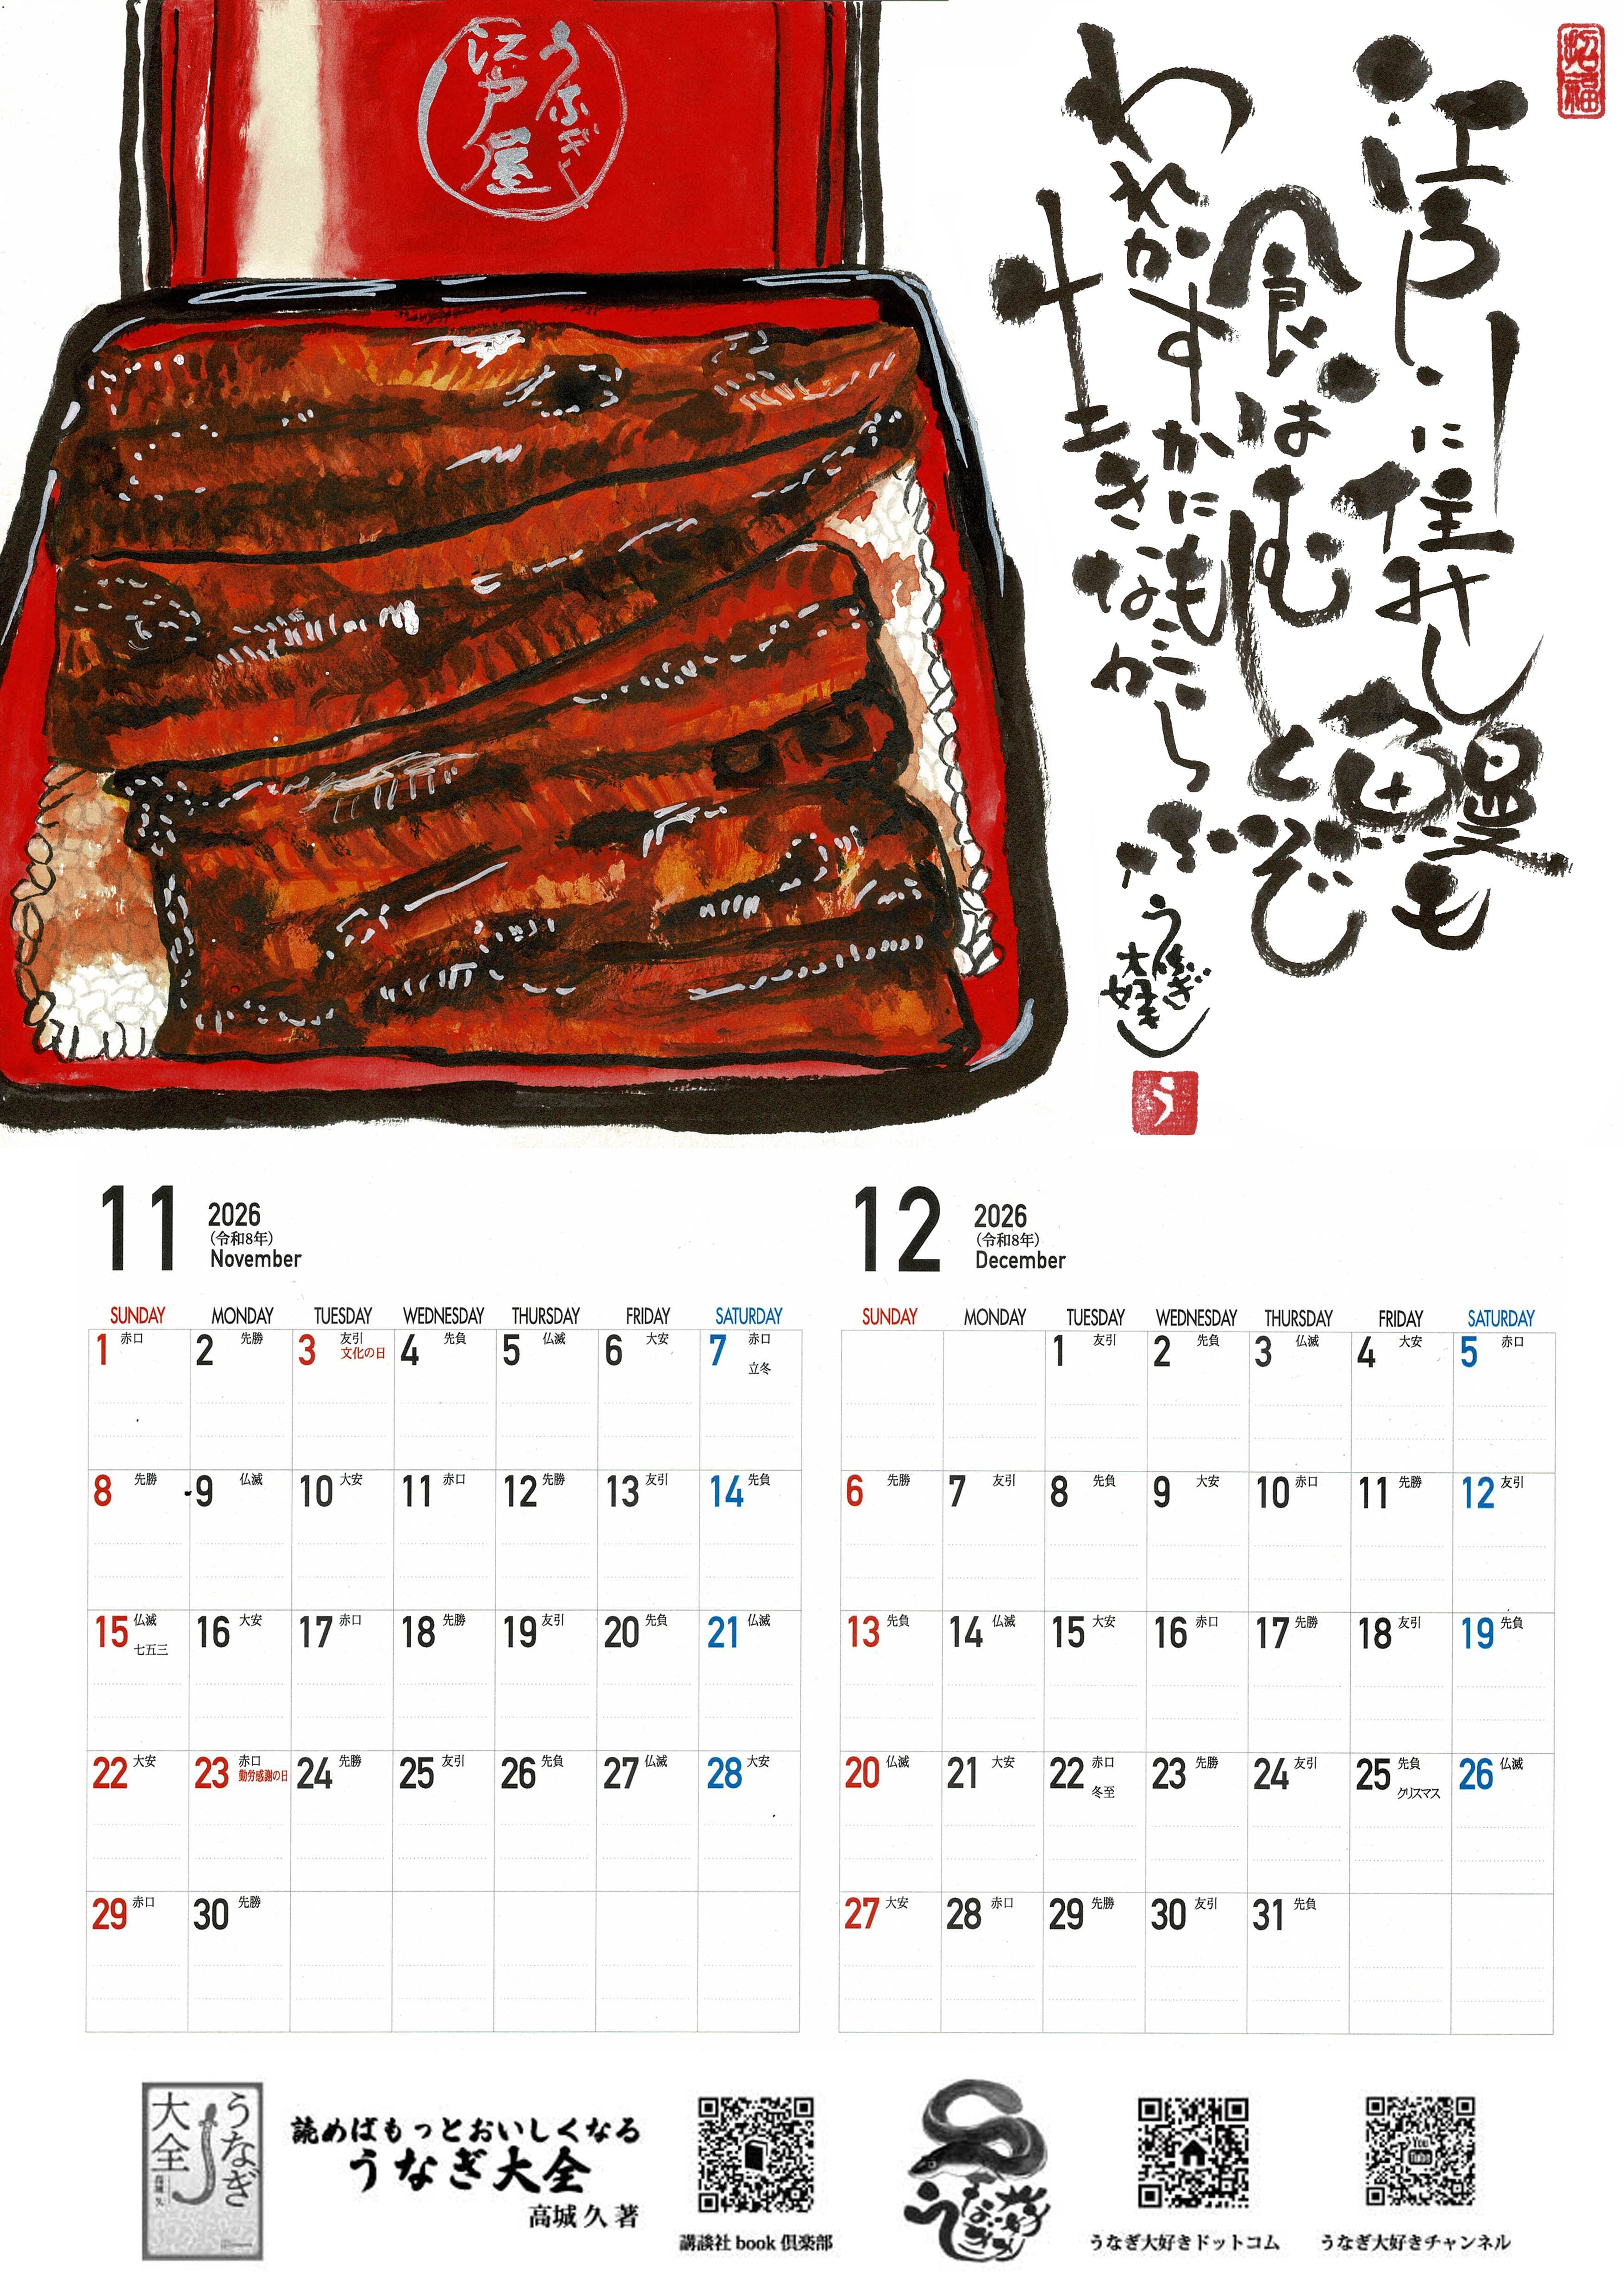 うなぎ
江戸屋
江戸川に住みし鰻も
食はむとぞ
われかすかにも
生きながらふ
うなぎ
大好き
う
11
2026
(令和8年)
November
SUNDAY MONDAY TUESDAY WEDNESDAY THURSDAY FRIDAY SATURDAY
1 赤口 2 先勝 3 友引 文化の日 4 先負 5 仏滅 6 大安 7 赤口 立冬
8 先勝 9 仏滅 10 大安 11 赤口 12 先勝 13 友引 14 先負
15 仏滅 七五三 16 大安 17 赤口 18 先勝 19 友引 20 先負 21 仏滅
22 大安 23 赤口 勤労感謝の日 24 先勝 25 友引 26 先負 27 仏滅 28 大安
29 赤口 30 先勝
12
2026
(令和8年)
December
SUNDAY MONDAY TUESDAY WEDNESDAY THURSDAY FRIDAY SATURDAY
1 友引 2 先負 3 仏滅 4 大安 5 赤口
6 先勝 7 友引 8 先負 9 大安 10 赤口 11 先勝 12 友引
13 先負 14 仏滅 15 大安 16 赤口 17 先勝 18 友引 19 先負
20 仏滅 21 大安 22 赤口 冬至 23 先勝 24 友引 25 先負 クリスマス 26 仏滅
27 大安 28 赤口 29 先勝 30 友引 31 先負
うなぎ
大全
高城 久
読めばもっとおいしくなる
うなぎ大全
高城 久 著
講談社 book 倶楽部
うなぎ大好き
うなぎ大好きドットコム
You
Tube
うなぎ大好きチャンネル